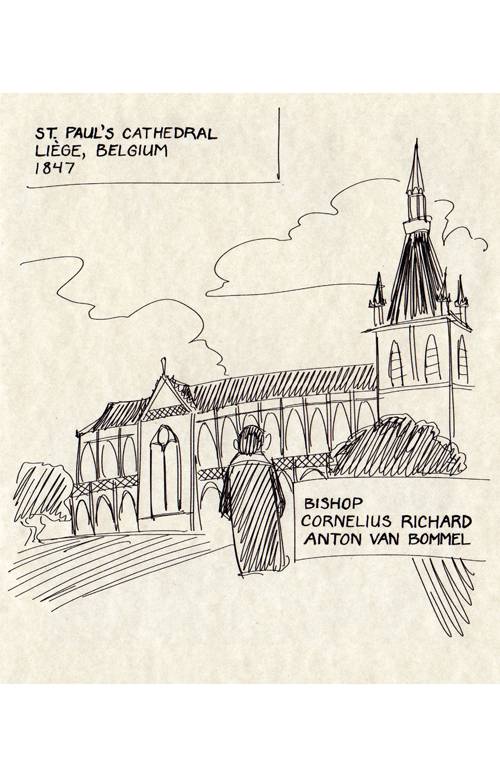 ST. PAUL'S CATHEDRAL
LIÈGE, BELGIUM
1847
BISHOP
CORNELIUS RICHARD
ANTON VAN BOMMEL